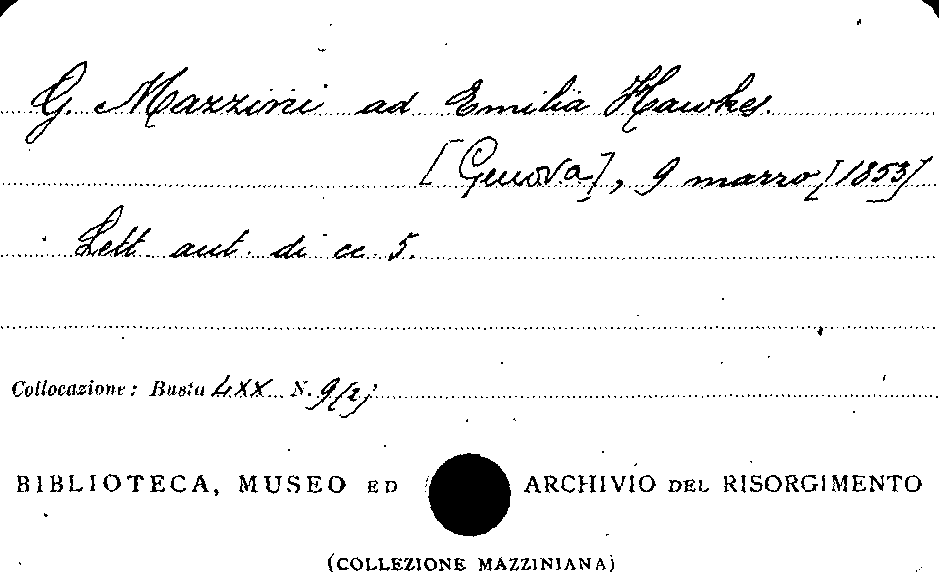 G. Mazzini ad Emilia Hawkes.
[Genova], 9 marzo [1853]
Lett. aut. di cc. 5.
Collocazione: Busta LXX N. 9(2)
BIBLIOTECA, MUSEO ED ARCHIVIO DEL RISORGIMENTO
(COLLEZIONE MAZZINIANA)